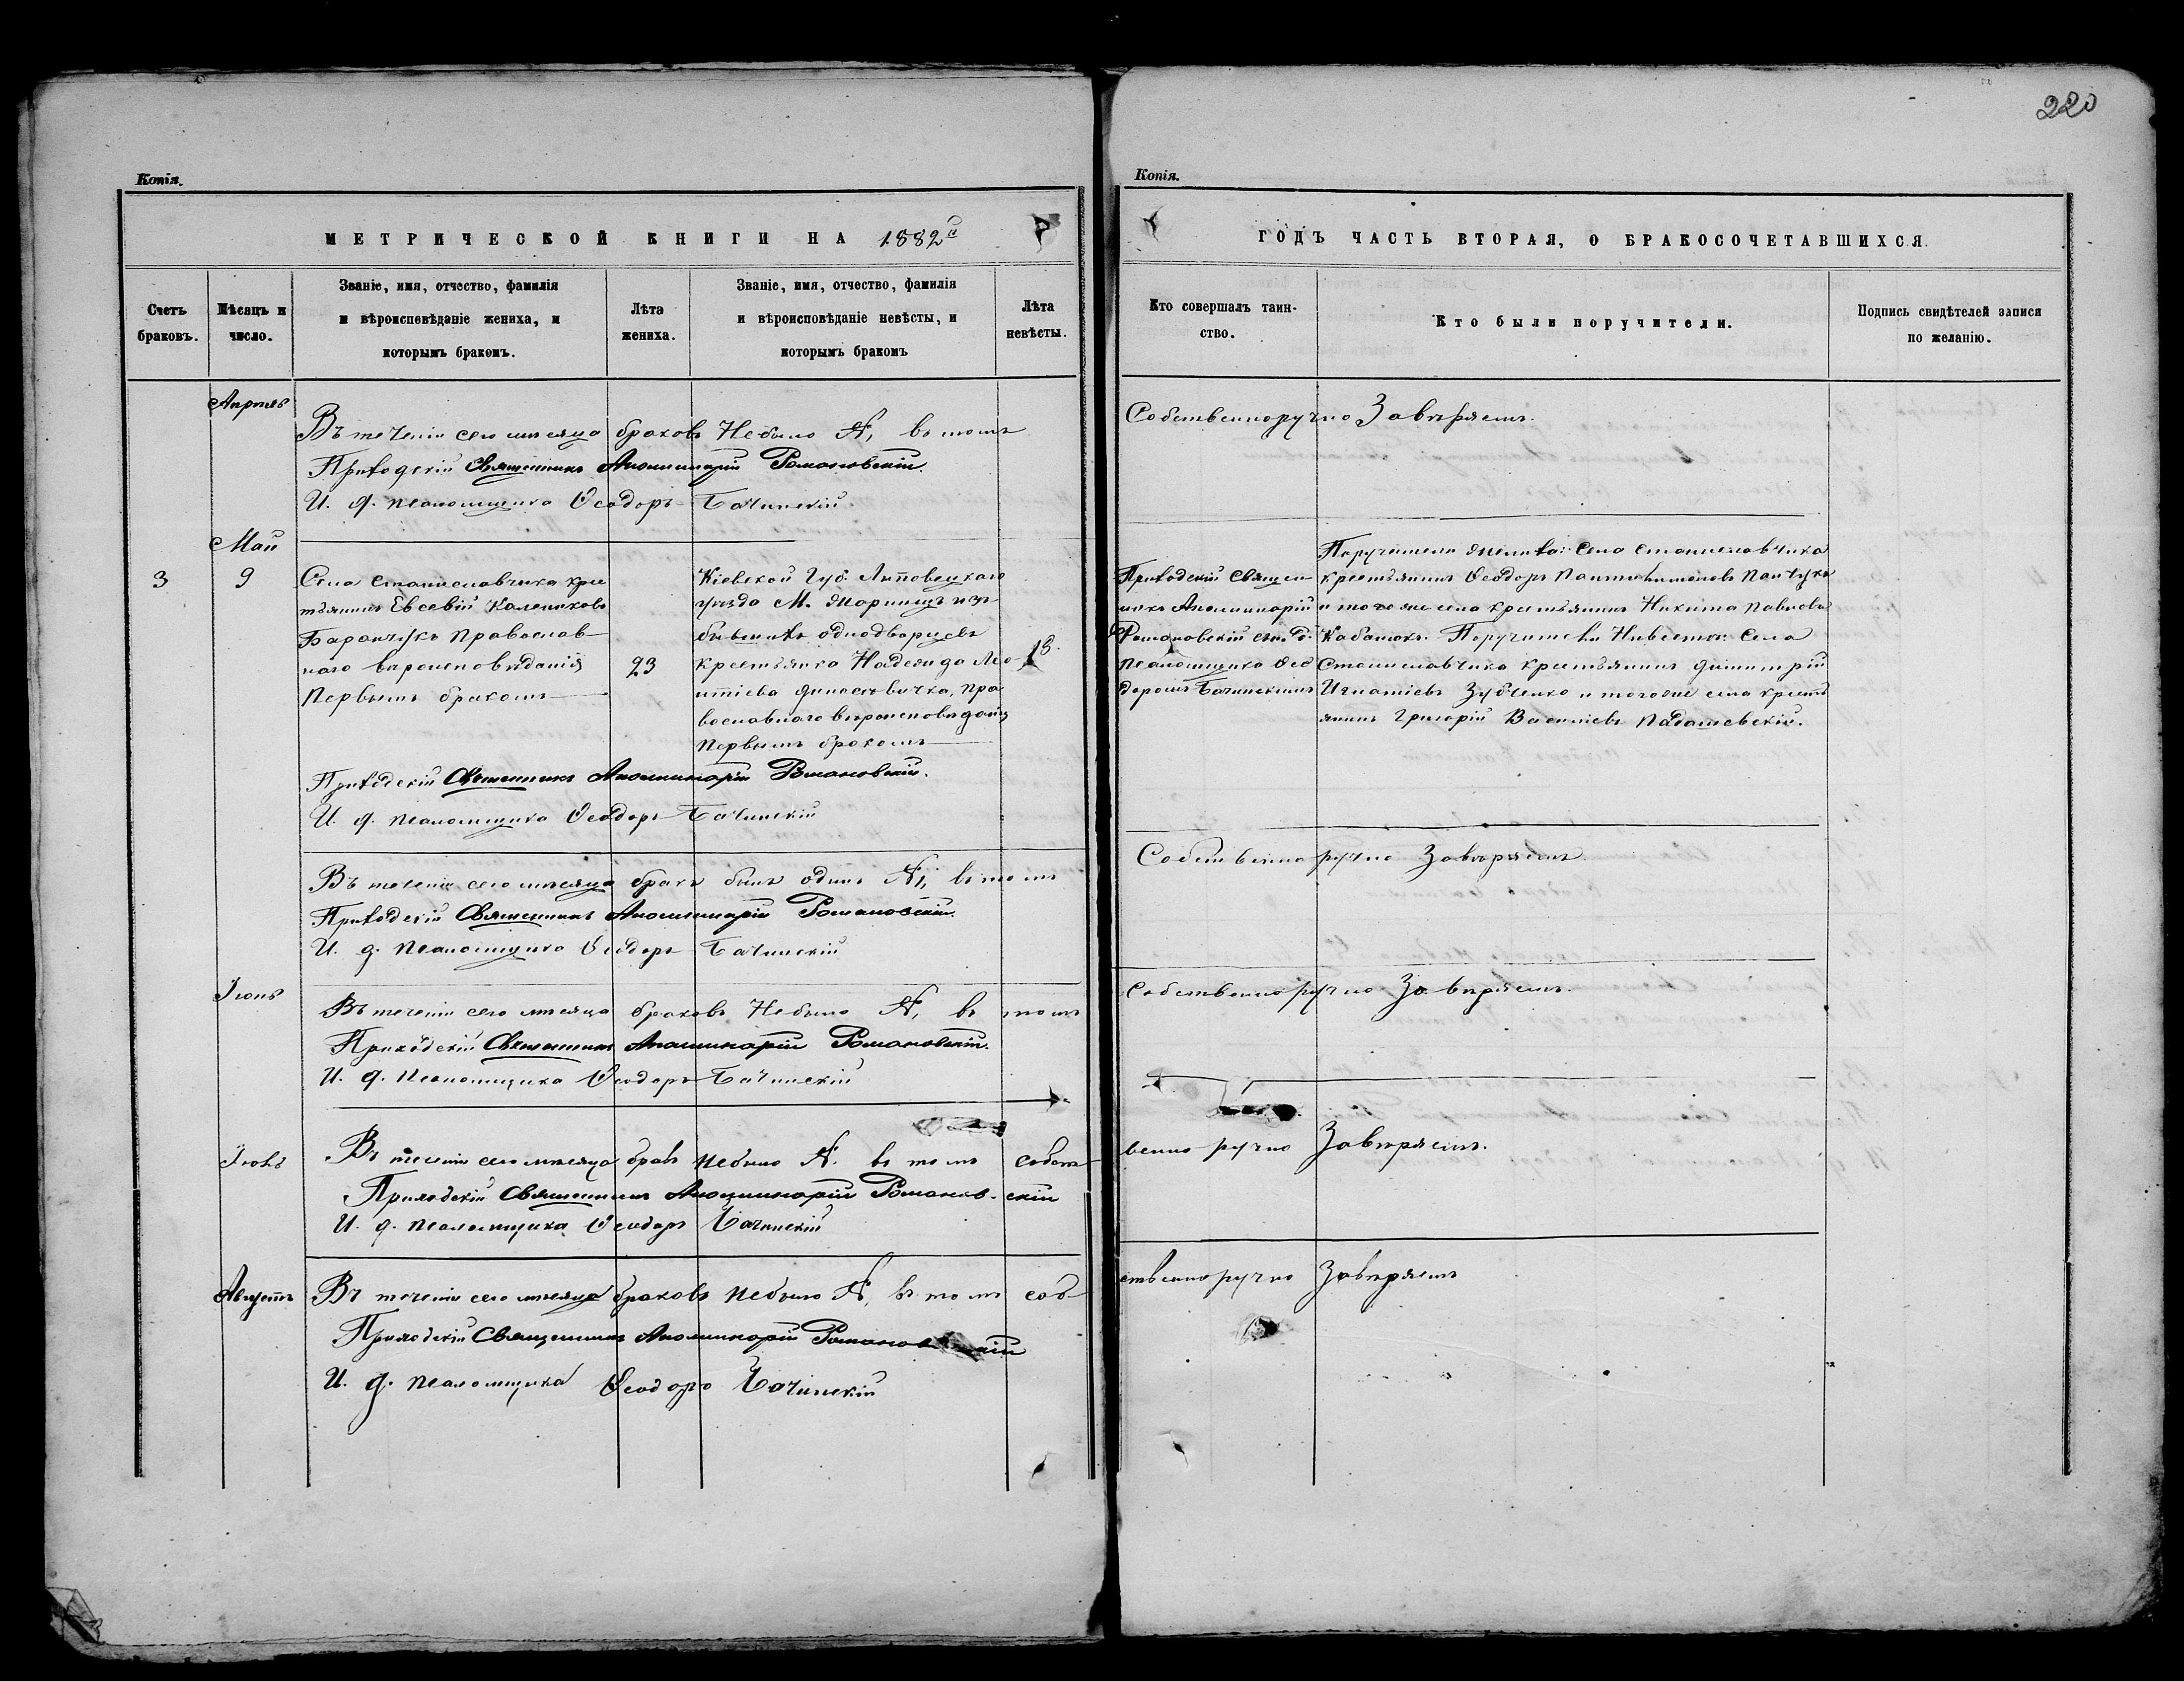 220
Копія.
МЕТРИЧЕСКОЙ КНИГИ НА 1882й
Счетъ браковъ.
Мѣсяцъ и число.
Званіе, имя, отчество, фамилія
и вѣроисповѣданіе жениха, и
которымъ бракомъ.
Лѣта жениха.
Званіе, имя, отчество, фамилія
и вѣроисповѣданіе невѣсты, и
которымъ бракомъ
Лѣта невѣсты.
Апрель
Въ теченіи сего мѣсяца браковъ Небыло №, въ томъ
Приходскій Священникъ Аполлинарій Романовскій.
И. д. псаломщика Ѳеодоръ Бачинскій
Май
3
9
Села Станиславчика крес
тьянинъ Евсевій Калениковъ
Баранчукъ Православ-
наго вѣроисповѣданія
Первымъ бракомъ
23
Кіевской Губ. Липовецкаго
уѣзда М. Жорнищъ изъ
бывшихъ однодворцевъ
крестьянка Надежда Лео-
нтіева, пра
вославнаго вѣроисповѣданія
Первымъ бракомъ
18.
Приходскій Священникъ Аполлинарій Романовскій.
И. д. псаломщика Ѳеодоръ Бачинскій
Въ теченіи сего мѣсяца бракъ былъ одинъ №1, въ томъ
Приходскій Священникъ Аполлинарій Романовскій.
И. д. псаломщика Ѳеодоръ Бачинскій
Іюнь
Въ теченіи сего мѣсяца браковъ Небыло №, въ томъ
Приходскій Священникъ Аполлинарій Романовскій.
И. д. Псаломщика Ѳеодоръ Бачинскій
Іюль
Въ теченіи сего мѣсяца бравъ небыло №. въ томъ собст-
Приходскій Священникъ Аполлинарій Романов-скій
И. д. псаломщика Ѳеодоръ Бачинскій
Августъ
Въ теченіи сего мѣсяца браковъ небыло №, въ томъ соб-
Приходскій Священникъ Аполлинарій Романовскій
И. д. псаломщика Ѳеодоръ Бачинскій
Копія.
ГОДЪ ЧАСТЬ ВТОРАЯ, О БРАКОСОЧЕТАВШИХСЯ.
Кто совершалъ таин-
ство.
Кто были поручители.
Подпись свидѣтелей записи
по желанію.
Собственноручно Завѣряемъ.
Приходскій Священ-
никъ Аполлинарій
Романовскій съ и. д.
псаломщика Ѳео
доромъ Бачинскимъ
Поручители жениха: Села Станиславчика
крестьянинъ Ѳеодоръ Пантелимоновъ Панчукъ
и того же села крестьянинъ Никита Павловъ
Кабанюкъ. Поручители Невѣсты: Села
Станиславчика крестьянинъ Димитрій
Игнатіевъ Зубченко и того же села кресть
янинъ Григорій Василіевъ Подашевскій.
Собственноручно Завѣряемъ
Собственноручно Завѣряемъ.
венно ручно Завѣряемъ.
ственноручно Завѣряемъ